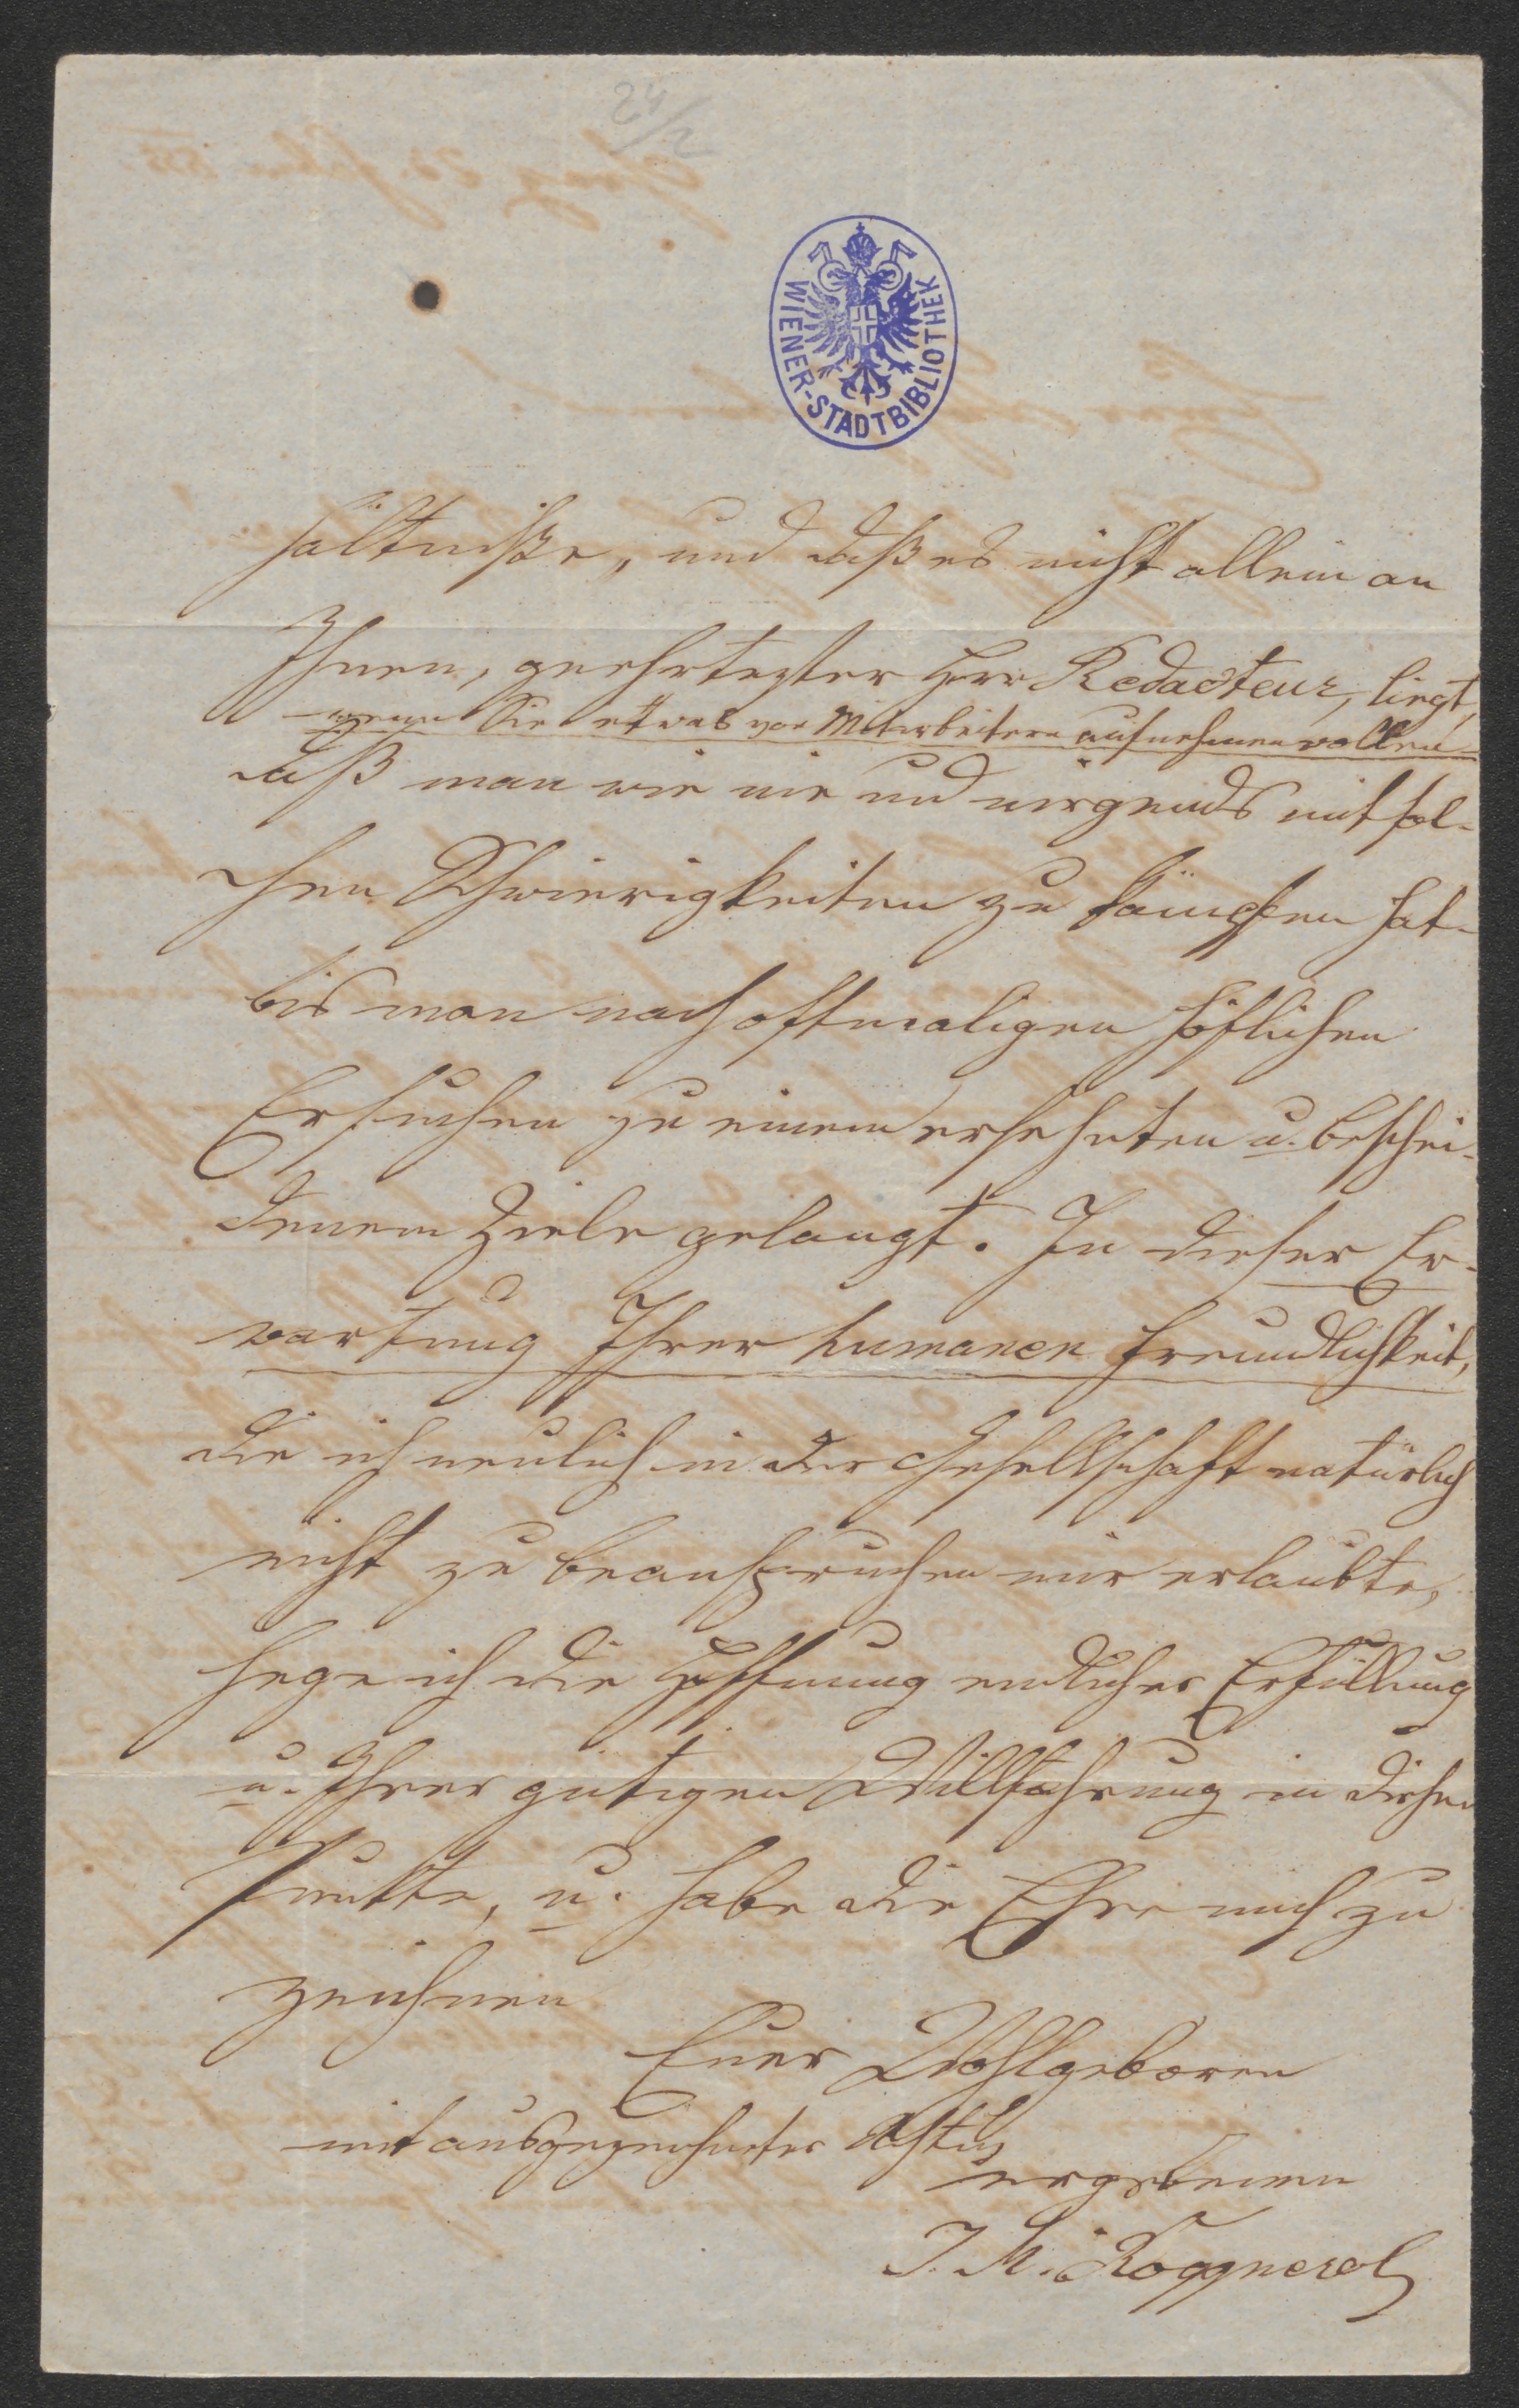 24/2
WIENER-STADTBIBLIOTHEK
hältniße, und daß es nicht allein an
Ihnen, geehrtester Herr Redacteur, liegt,
wenn Sie etwas von Mitarbeitern aufnehmen wollen
daß man wie nie und nirgends mit sol-
chen Schwierigkeiten zu kämpfen hat-
bis man nach oftmaligen höflichen
Ersuchen zu einem ersehnten u. beschei-
denem Ziele gelangt. In dieser Er-
wartung Ihrer humanen Freundlichkeit,
die ich neulich in der Gesellschaft natürlich
nicht zu beanspruchen mir erlaubte,
hege ich die Hoffnung endlicher Erfüllung
u. Ihrer gütigen Willfahrung in diesem
Punkte, u. habe die Ehre mich zu
zeichnen
Euer Wohlgeboren
mit ausgezeichneter Achtung
ergebenen
J. K.